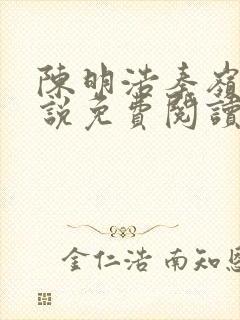 陳明浩秦嶺
說免費閱讀
金仁浩 南知恩